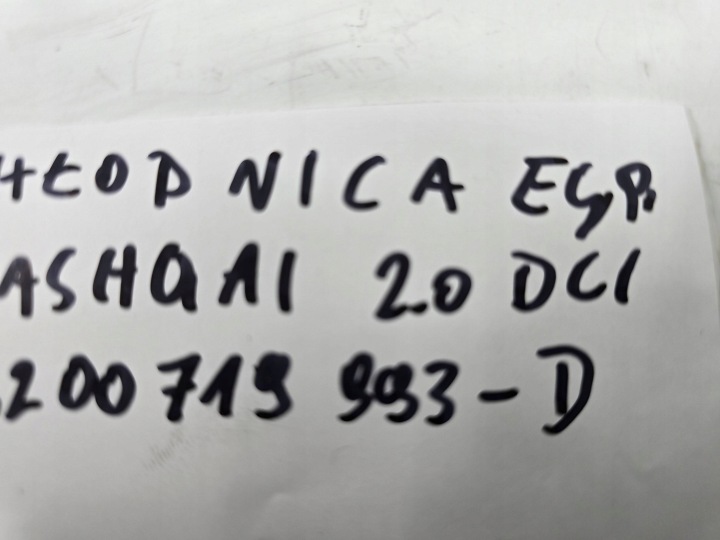 HŁODNICA EGR
ASHQAI 2.0 DCI
200719993-D